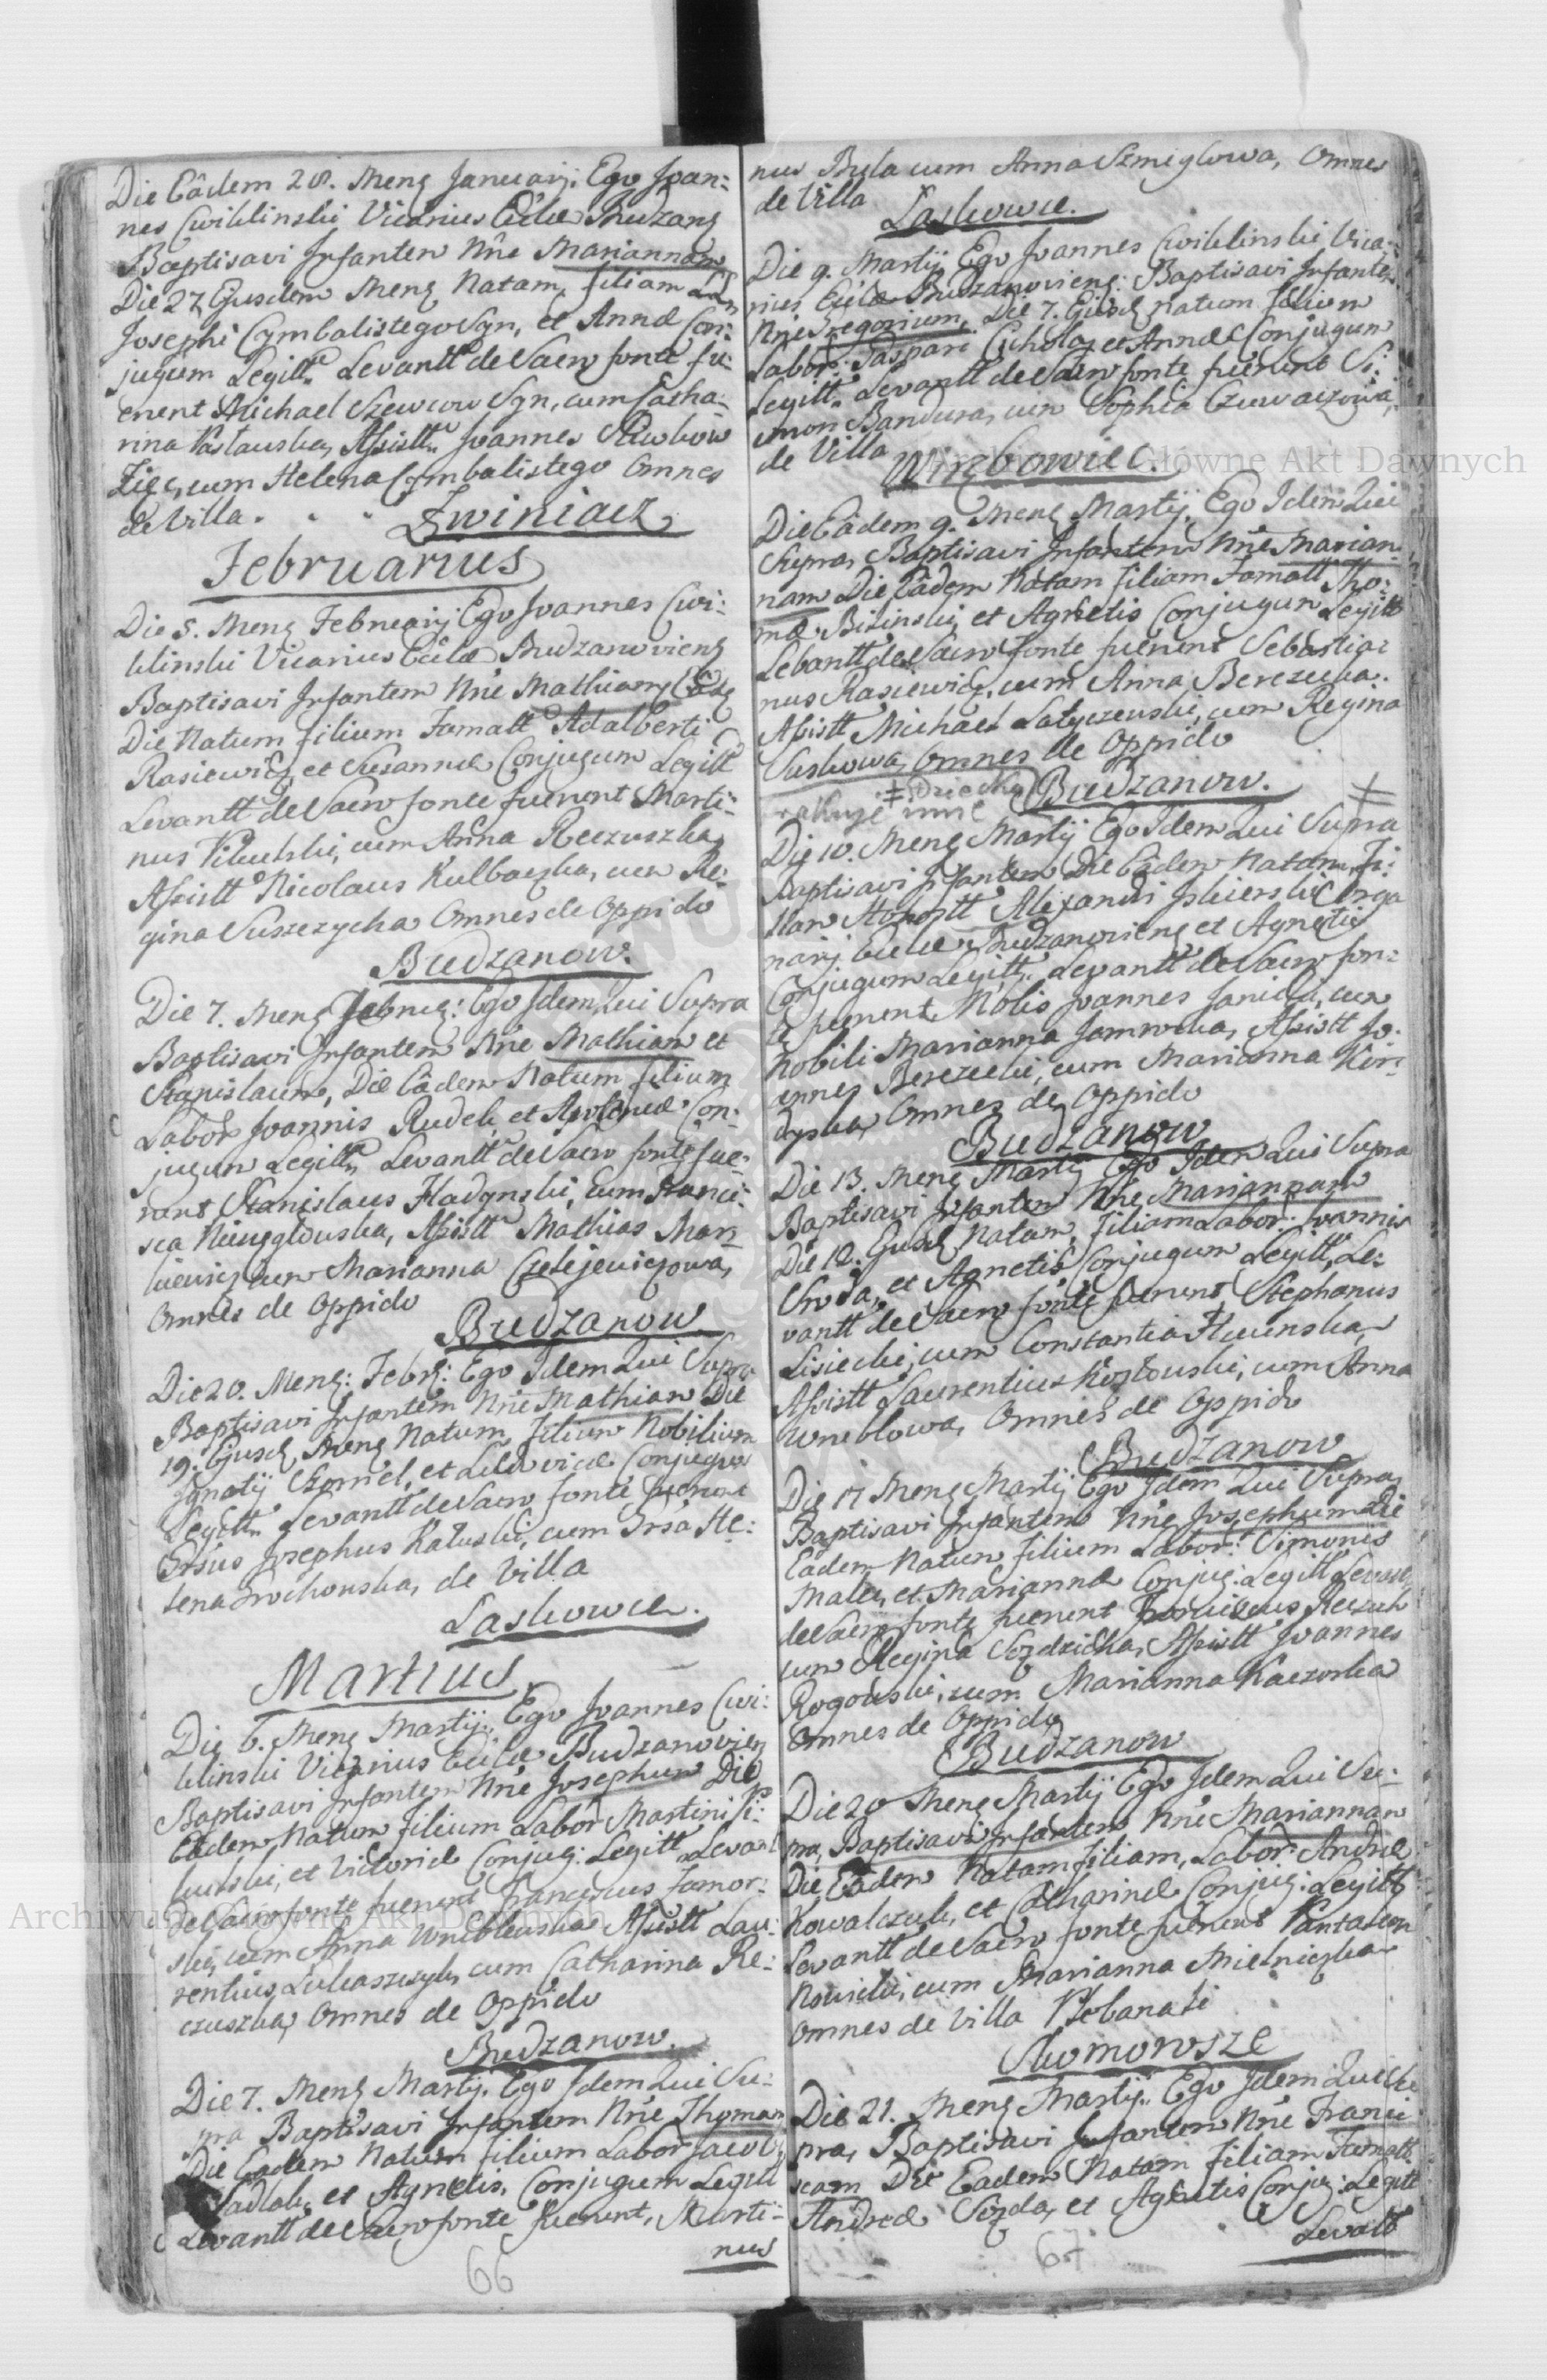 Die Eâdem 28. Mensis Januarij: Ego Joan:
nes Cwiklinski Vicarius Eclæ Budzan
Baptisavi Infantem Nne Mariannam
Die 27 Ejusdem Mens Natam, filiam
Josephi Cymbalistego Syn, et Annæ Con:
jugum Legitt. Levantt de Sacro fonte fu:
erunt Michael Szewcow Syn, cum Catha:
rina Assistt. Joannes
Ziec, cum Helena Cymbalistego Omnes
de Villa . . . Zwiniacz
Februarius
Die 5. Mens Februarij Ego Joannes Cwi:
klinski Vicarius Eclæ Budzanoviens
Baptisavi Infantem Nne Mathiam Eâdem
Die Natum filium Famatt Adalberti
Rasiewicz, et Susannæ Conjugum Legitt
Levantt de Sacro fonte fuerunt Marti:
nus cum Anna Reczuszka
Assistt Nicolaus Kulbaczka, cum Re:
gina Suszczycha Omnes de Oppido
Budzanow.
Die 7. Mens Februa: Ego Idem Qui Supra
Baptisavi Infantem Nne Mathiam et
Stanislaum, Die Eâdem Natum filium
Labor Joannis Rudek, et Con:
jugum Legitt. Levantt de Sacro fonte fue:
runt Stanislaus Hladynski, cum Franci:
sca Assistt Mathias Mar
cum Marianna Czelejewiczowa,
Omnes de Oppido
Budzanow
Die 20. Mens: Febr: Ego Idem Qui Supra
Baptisavi Infantem Nne Mathiam Die
19. Ejusd Mens Natum, filium Nobilium
Ignatij et Ludovicæ Conjugum
Legitt. Levantt de Sacro fonte fuerunt
Josephus Kaluski, cum He:
lena Grochowska, de Villa
Laskowce.
Martius
Die 6. Mens Martij. Ego Joannes Cwi:
klinski Vicarius Eclæ Budzanovien
Baptisavi Infantem Nne Josephum Die
Eadem Natum filium Labor Martini Pi:
et Victoriæ Conjug: Legitt Levant
de Sacro fonte fuerunt Franciscus Jamor:
ski, cum Anna Wrublewska Assistt Lau:
rentius Lukaszczyk, cum Catharina Re:
czuszka, Omnes de Oppido
Budzanow.
Die 7. Mens Martij. Ego Idem Qui Su:
pra Baptisavi Infantem Nne Thomam
Die Eadem Natum filium Labor Jacobi
Sadlak, et Agnetis, Conjugum Legitt
Levantt de Sacro fonte fuerunt, Marti:
nus
66
nus Bula cum Anna Szmiglowa, Omnes
de Villa
Laskowce.
Die 9. Martij Ego Joannes Cwiklinski Vica:
rius Eclæ Budzanoviens: Baptisavi Infantem
Nne Gregorium, Die 7. Ejusd Natum filium
Labor: Gaspari Cichola, et Annæ Conjugum
Legitt. Levantt de Sacro fonte fuerunt Si:
mon Bandura, cum Sophia
de Villa
Wirzbowiec.
Die Eâdem 9. Mens Martij. Ego Idem Qui
Supra, Baptisavi Infantem Nne Marian:
nam Die Eâdem Natam filiam Famatt Tho:
mæ Bilinski, et Agnetis Conjugum Legitt
Levantt de Sacro fonte fuerunt Sebastia:
nus Rasiewicz, cum Anna Berezecka.
Assistt Michael Latyczewski, cum Regina
Suskowa, Omnes de Oppido
Budzanow.
Die 10. Mens Martij Ego Idem Qui Supra
Baptisavi Infantem Die Eâdem Natam Fi:
liam Honestt Alexandri Orga
narij Eclæ Budzanoviens et Agnetis
Conjugum Legitt. Levantt de Sacro fon:
te fuerunt Nobis Joannes cum
Nobili Marianna Assistt Jo:
annes Berezecki, cum Marianna Kir:
Omnes de Oppido
Budzanow
Die 13. Mens Martij Ego Idem Qui Supra
Baptisavi Infantem Nne Mariannam
Die 12. Ejusd Natam, filiam Labor: Joannis
Sroda, et Agnetis Conjugum Legitt, Le:
vantt de Sacro fonte fuerunt Stephanus
Lisiecki, cum Constantia
Assistt Laurentius Kozlowski, cum Anna
Wrublowa, Omnes de Oppido
Budzanow
Die 17 Mens Martij Ego Idem Qui Supra,
Baptisavi Infantem Nne Josephum Die
Eadem Natum filium Labor: Simonis
et Mariannæ Conjug: Legitt Levantt
de Sacro fonte fuerunt Reczuch
cum Regina Assistt Joannes
Rogowski, cum Marianna Kaczorka
Omnes de Oppido
Budzanow
Die 20 Mens Martij Ego Idem Qui Su:
pra, Baptisavi Infantem Nne Mariannam
Die Eadem Natam filiam, Labor Andreæ
Kowalczuk, et Catharinæ Conjug: Legitt
Levantt de Sacro fonte fuerunt Pantaleon
Nowicki, cum Marianna Mielniczka
Omnes de Villa Plebanali
Skomorosze
Die 21. Mens Martij. Ego Idem Qui Su
pra, Baptisavi Infantem Nne Franci
scam Die Eadem Natam filiam Famatt
Andreæ et Agnetis Conjug: Legitt
Levatt
67
Archiwum Główne Akt Dawnych
Archiwum Główne Akt Dawnych